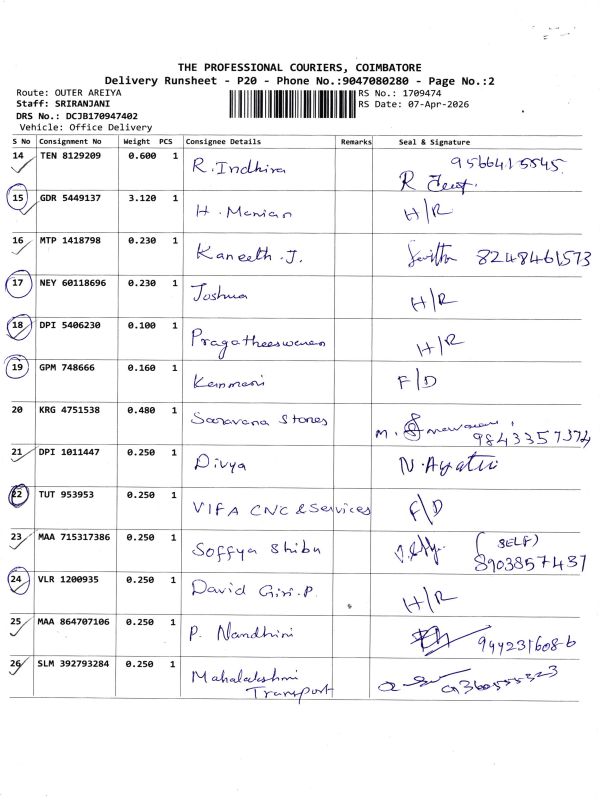 THE PROFESSIONAL COURIERS, COIMBATORE
Delivery Runsheet - P20 - Phone No.:9047080280 - Page No.:2
Route: OUTER AREIYA
RS No.: 1709474
Staff: SRIRANJANI
RS Date: 07-Apr-2026
DRS No.: DCJB170947402
Vehicle: Office Delivery
S No Consignment No Weight PCS Consignee Details Remarks Seal & Signature
14 TEN 8129209 0.600 1 R. Indhira 9566415545
15 GDR 5449137 3.120 1 H. Manian H/R
16 MTP 1418798 0.230 1 Kaneeth. J. 8248461573
17 NEY 60118696 0.230 1 Joshua H/R
18 DPI 5406230 0.100 1 Pragatheeswaran H/R
19 GPM 748666 0.160 1 Kanmani F/D
20 KRG 4751538 0.480 1 Saravana Stores M. 9843357374
21 DPI 1011447 0.250 1 Divya N.
22 TUT 953953 0.250 1 VIFA CNC & Services F/D
23 MAA 715317386 0.250 1 Soffya Shibu (SELF)
8903857437
24 VLR 1200935 0.250 1 David Giri. P. H/R
25 MAA 864707106 0.250 1 P. Nandhini 944231608-6
26 SLM 392793284 0.250 1 Mahalakshmi
Transport